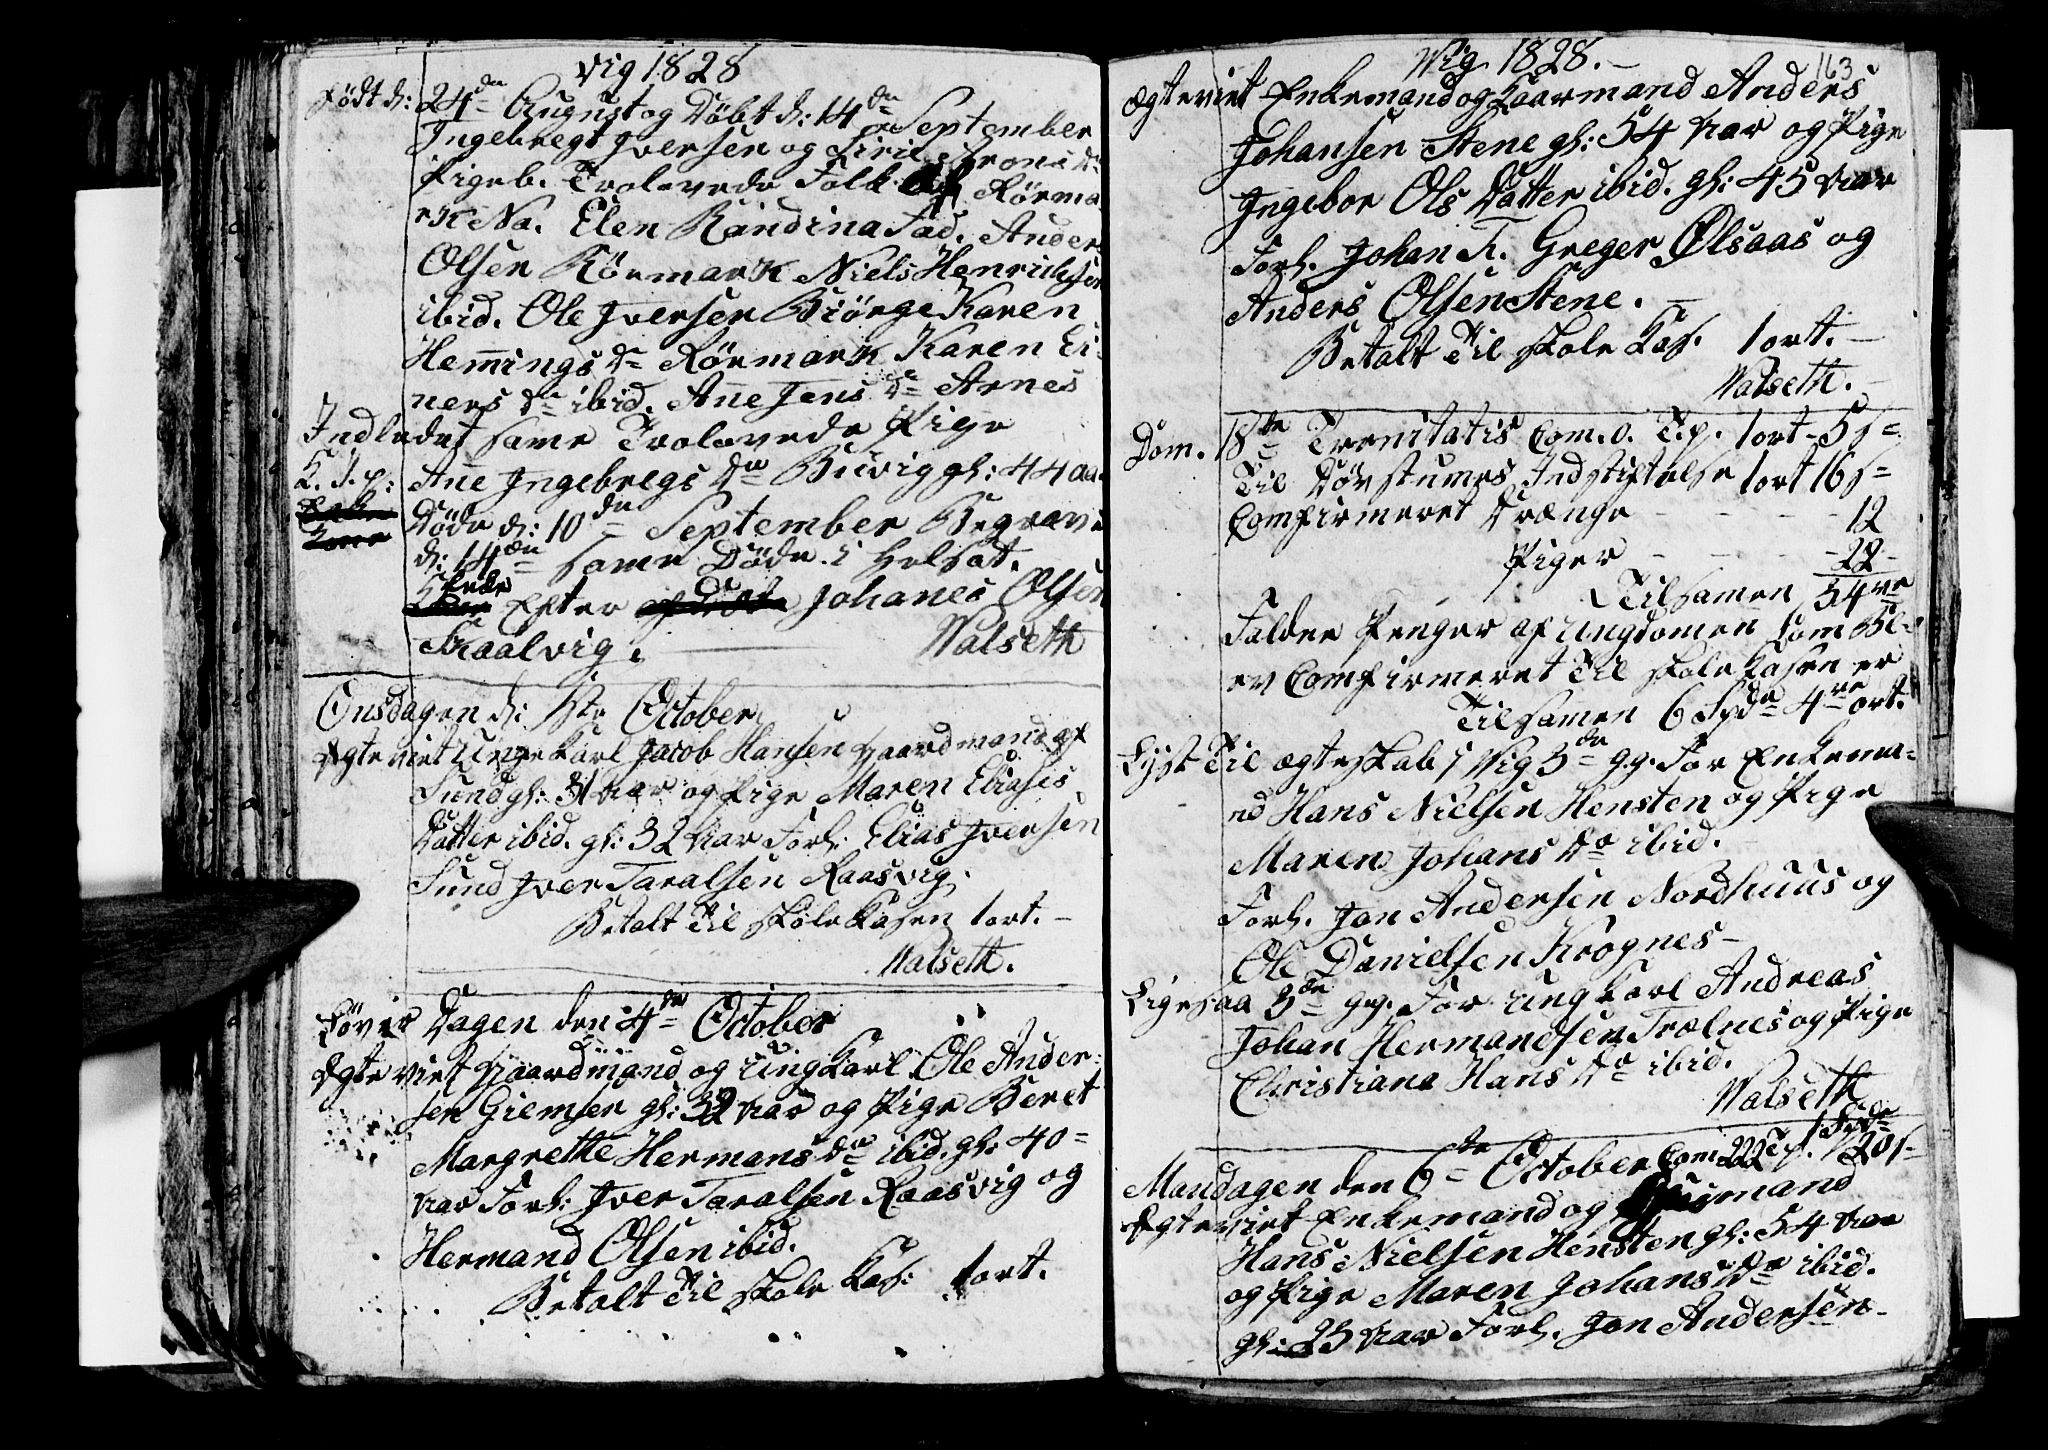 Vig 1828
Født d: 24de August og Døbt d: 14de September
Ingebregt Iversen og Siri
Pigeb. Trolovede Folk af Rørma-
rk Na. Elen Randina Fad. Anders
Olsen Rørmark Niels Henrichsen
ibid. Ole Iversen Biörge Karen
Hem̄ings Dr Rørmark Karen Ei-
ners Dr ibid. An̄e Jens Dr Arnes
Indledet same Trolovede Pige
K. J. p: An̄e Ingebregs Dr Buvig gl: 44 aa
Døde d: 10de September Begravet
d: 14de same Døde i
Efter Johanes Olsen
Skaalvig. Walseth
Onsdagen d: 1ste October
Ægteviet Ungekarl Jacob Hansen Gaardmand af
Sund gl: 31 Aar og Pige Maren Eliases
Datter ibid. gl: 32 Aar Forl: Elias Iversen
Sund Iver Taralsen Raasvig.
Betalt Til Skole Kasen 1 ort.
Walseth.
Løver Dagen den 4de October
Ægteviet Gaardmand og Ungkarl Ole Ander-
sen Giemsen gl: 32 Aar og Pige Beret
Margrethe Hermans Dr ibid. gl: 40
Aar Forl: Iver Taralsen Raasvig og
Hermand Olsen ibid.
Betalt Til Skole Kas: 1 ort.
Wig 1828.
163
Ægteviet Enkemand og Gaarmand Anders
Johansen Stene gl: 54 Aar og Pige
Ingebor Ols Datter ibid. gl: 45 Aar
Forl. Johan K. Greger Ølsaas og
Anders Olsen Stene.
Betalt Til Skole Kas. 1 ort.
Walseth.
Dom. 18de Trenitatis Com. 0. T.p. 1 ort 5 s
Til Døvstumes Indstiftelse 1 ort 16 s
Comfirmeret Drænge 12
Piger 22
Tilsamen 34re
Falden Penger af Ungdomen som Bl-
ev Comfirmeret Til Skole Kasen er
Tilsamen 6 Spdr 4re ort.
Lyst Til Ægteskab i Wig 3de g.g. For Enkema-
nd Hans Nielsen Hensten og Pige
Maren Johans Dr ibid.
Forl. Jon Andersen Nordhuus og
Ole Danielsen Krognes
Ligesaa 3de g.g. For Ungkarl Andreas
Johan Hermandsen Trælnes og Pige
Christiana Hans Dr ibid.
Walseth
Mandagen den 6te October Com. 222 T.p. 1 Spdr 20 s
Ægteviet Enkemand og
Hans Nielsen Hensten gl: 54 Aar
og Pige Maren Johans Dr ibid.
gl: 25 Aar Forl. Jon Andersen